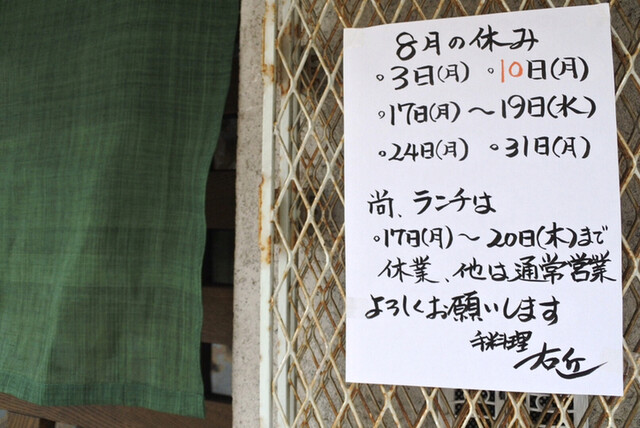 8月の休み
。3日(月) 。10日(月)
。17日(月)〜19日(水)
。24日(月) 。31日(月)
尚、ランチは
。17日(月)〜20日(木)まで
休業、他は通常営業
よろしくお願いします
手料理